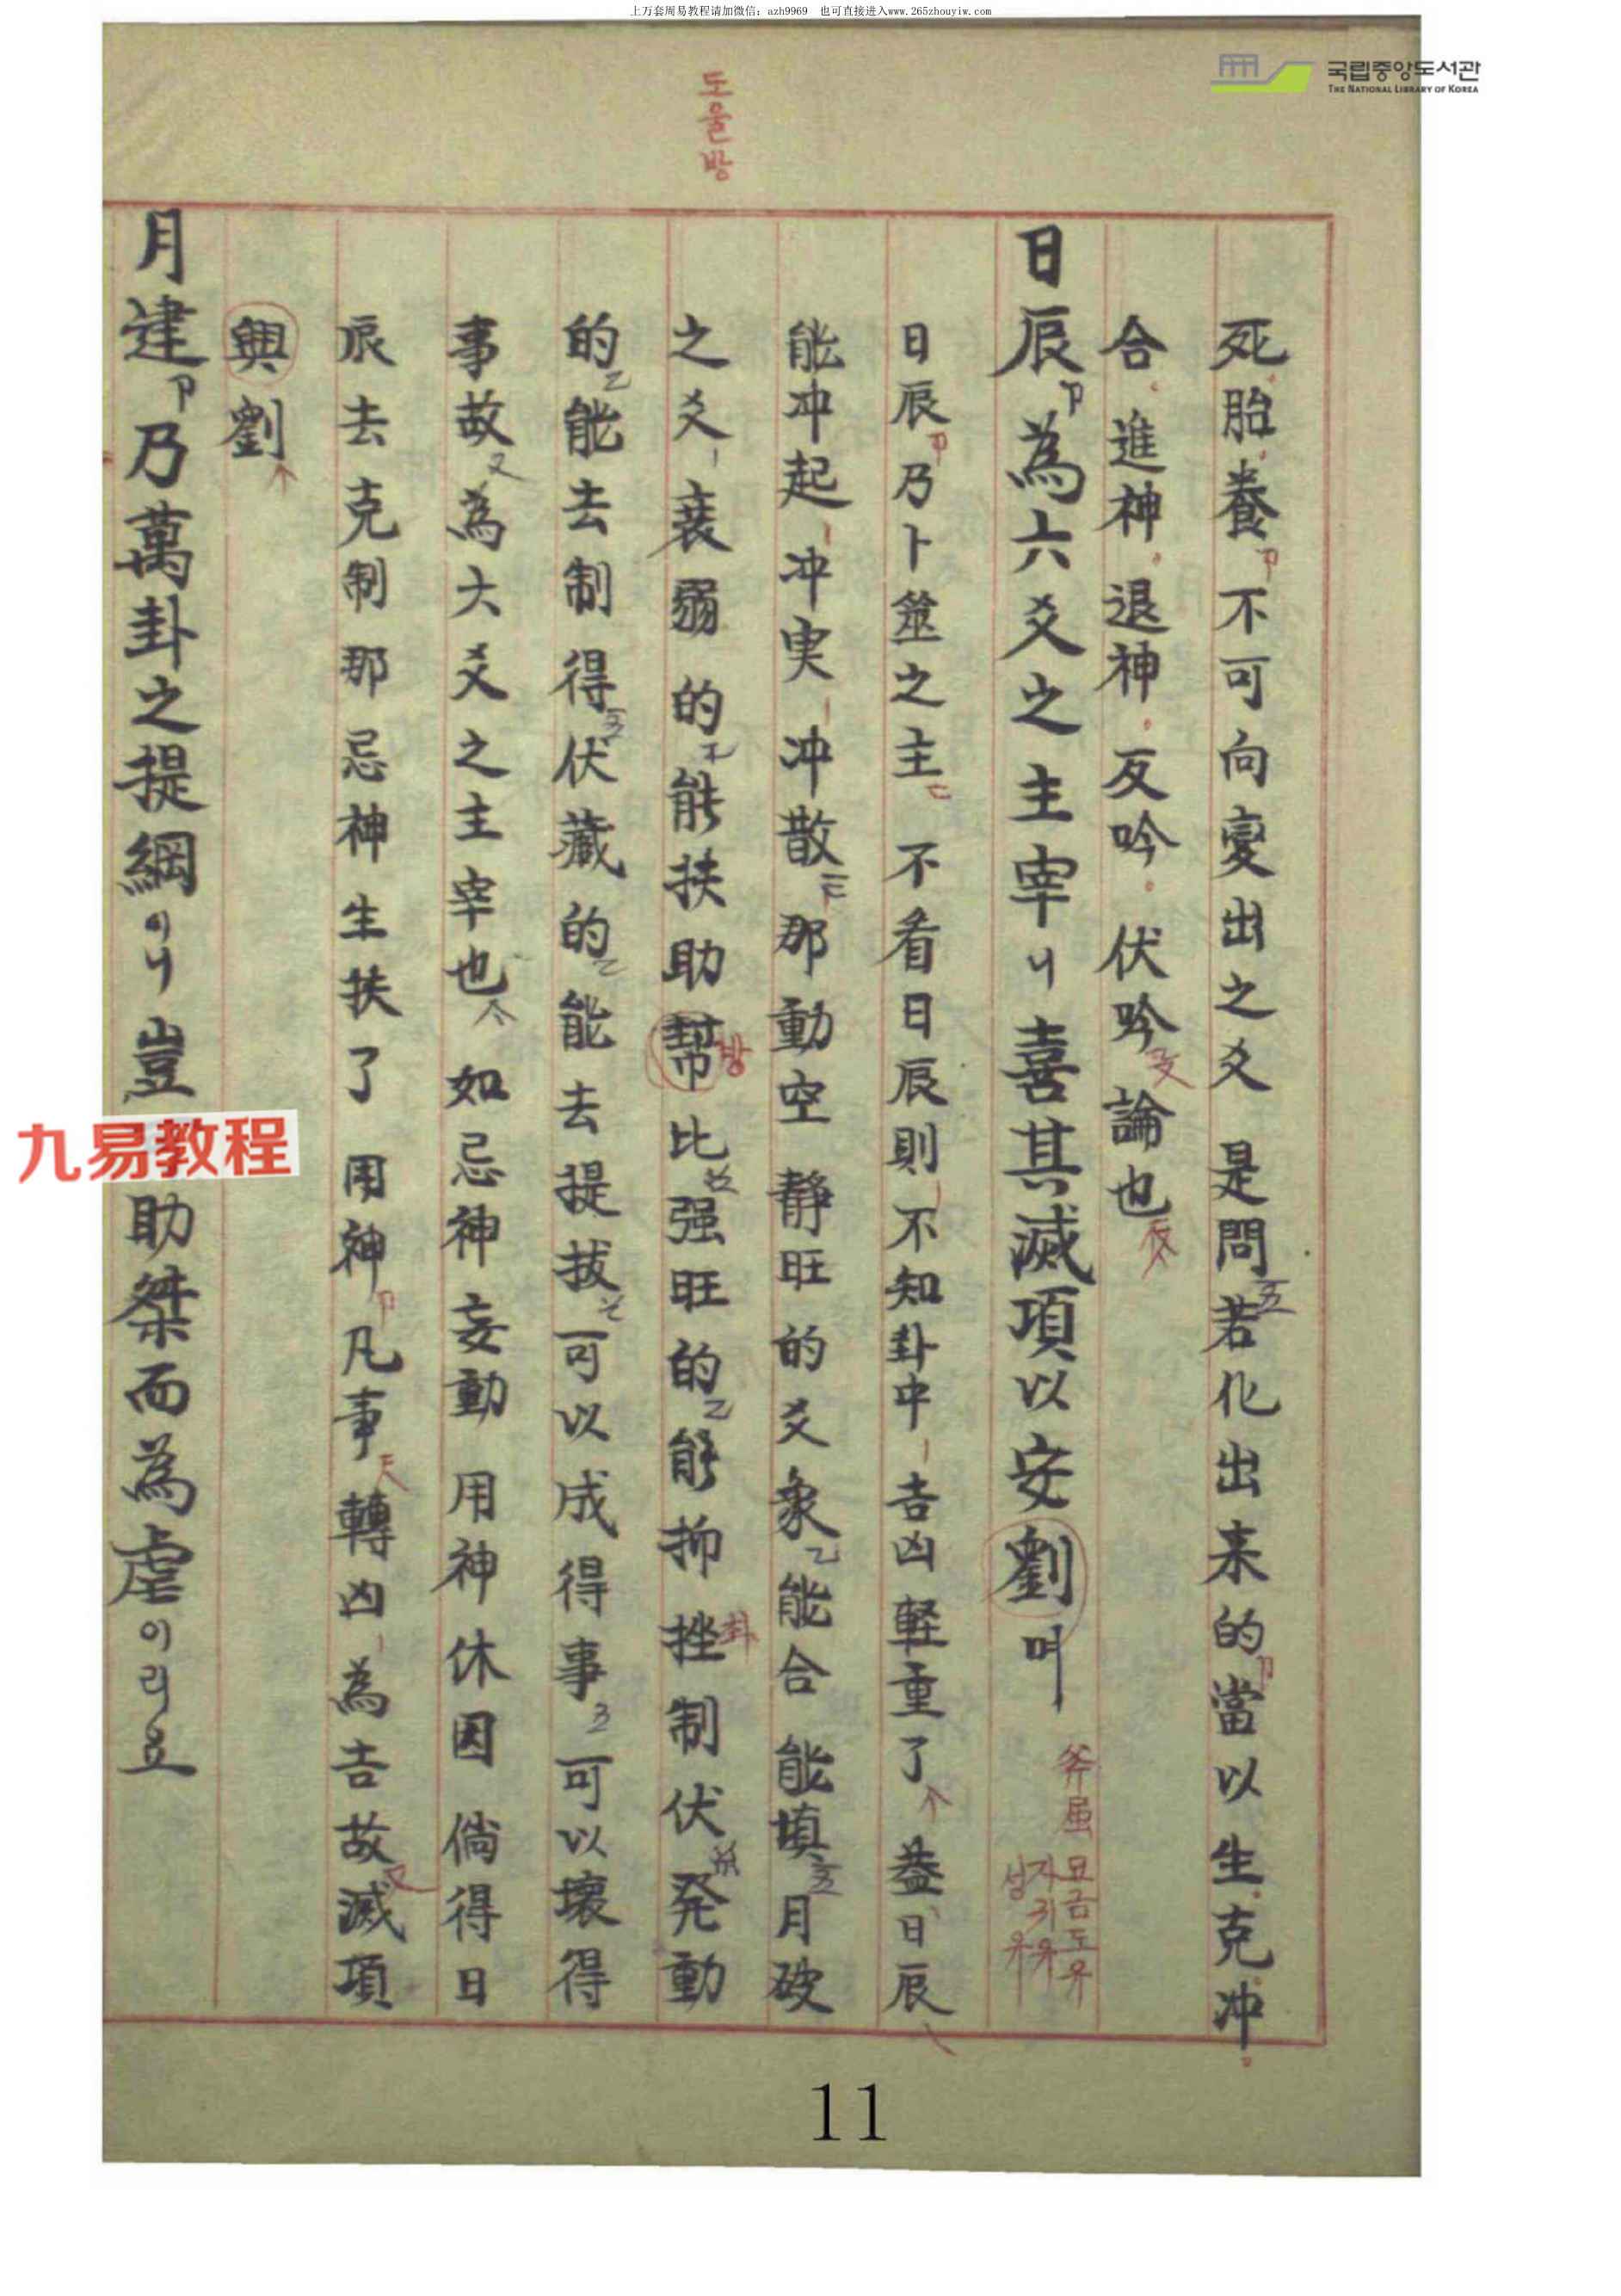 上万套周易教程请加微信：azh9969　也可直接进入www.265zhouyiw.com
국립중앙도서관
THE NATIONAL LIBRARY OF KOREA
도울방
死胎養不可向変出之爻 是問若化出来的當以生克冲
合進神退神反吟伏吟論也
日辰為六爻之主宰ㅣ니喜其滅項以安劉이며
日辰乃卜筮之主 不看日辰則不知卦中吉凶軽重了 葢日辰
能冲起冲実冲散 那動空 静旺的爻象能合 能填月破
之爻衰弱的能扶助幇比强旺的能抑挫制伏発動
的能去制得伏藏的能去提拔可以成得事可以壞得
事故為六爻之主宰也 如忌神妄動 用神休囚 倘得日
辰去克制那忌神生扶了 用神凡事轉凶為吉故滅項
興劉
月建乃萬卦之提綱이니豈助桀而為虐이리요
九易教程
11